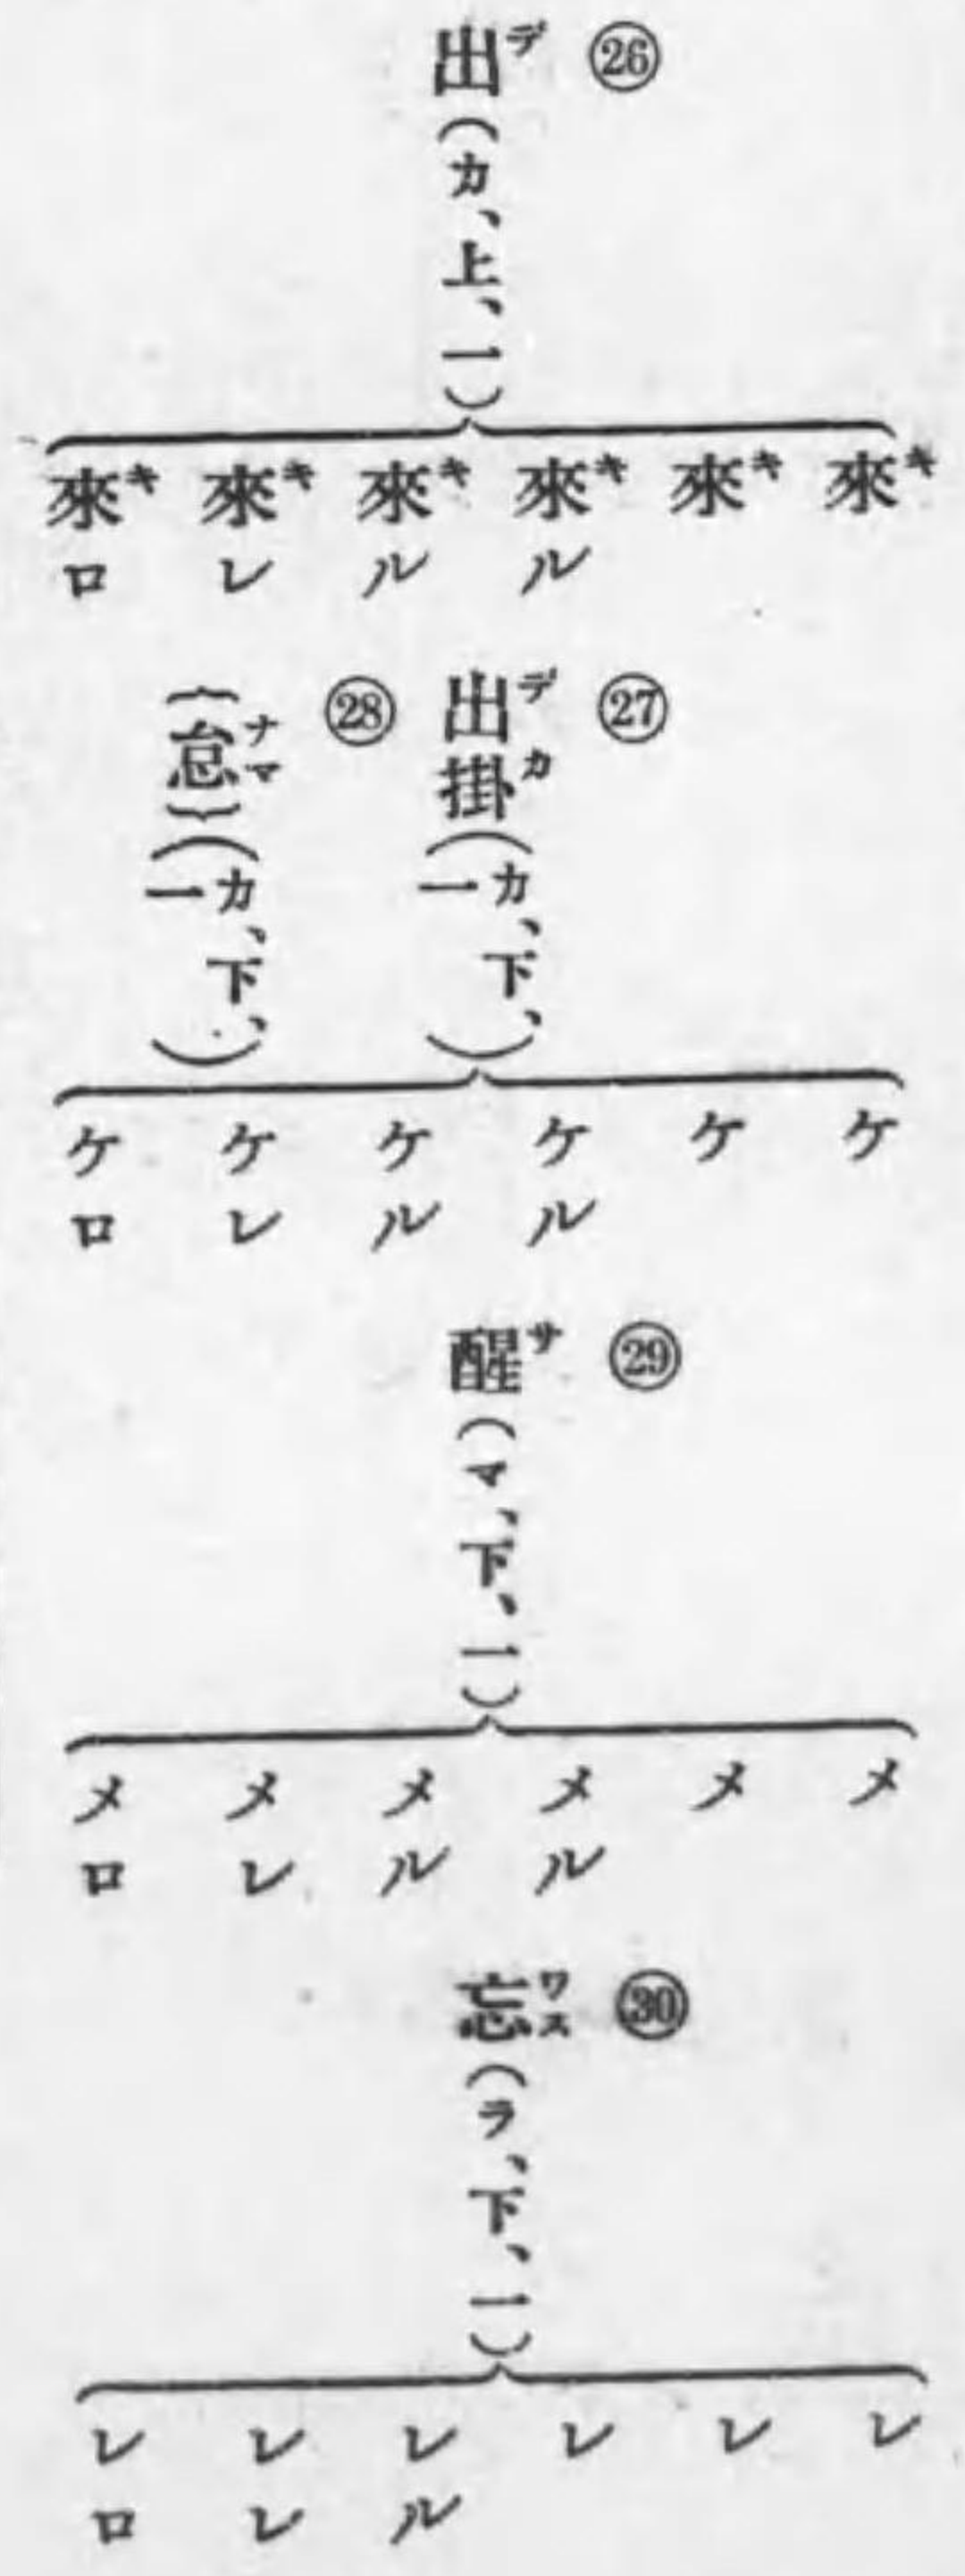 ㉖
出デ(カ、上、一)
來キ
來キ
來キル
來キル
來キレ
來キロ
㉗
出デ掛カ(カ、下、一)
㉘
{怠ナマ}(カ、下、一)
ケ
ケ
ケル
ケル
ケレ
ケロ
㉙
醒サ(マ、下、一)
メ
メ
メル
メル
メレ
メロ
㉚
忘ワス(ラ、下、一)
レ
レ
レ
レル
レレ
レロ